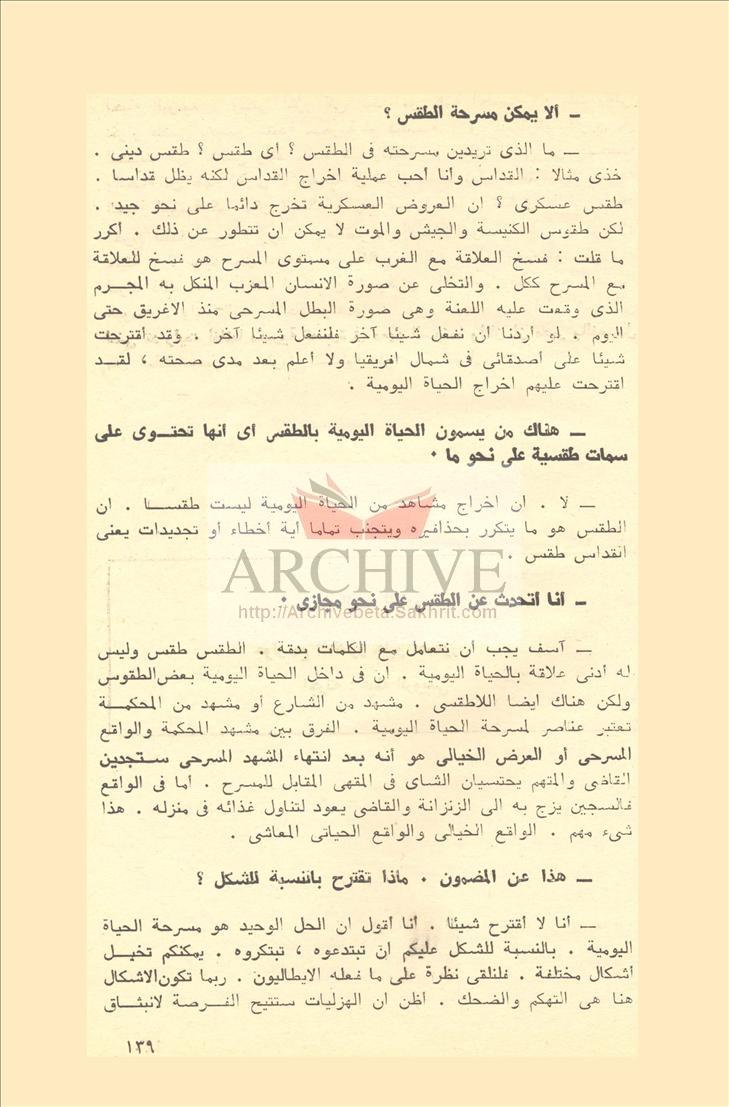 — ألا يمكن مسرحة الطقس ؟
— ما الذى تريدين مسرحته فى الطقس ؟ اى طقس ؟ طقس دينى .
خذى مثالا : القداس وأنا أحب عملية اخراج القداس لكنه يظل قداسا .
طقس عسكرى ؟ ان العروض العسكرية تخرج دائما على نحو جيد .
لكن طقوس الكنيسة والجيش والموت لا يمكن ان تتطور عن ذلك . أكرر
ما قلت : فسخ العلاقة مع الغرب على مستوى المسرح هو فسخ للعلاقة
مع المسرح ككل . والتخلى عن صورة الانسان المعزب المنكل به المجـرم
الذى وقعت عليه اللعنة وهى صورة البطل المسرحى منذ الاغريق حتى
اليوم . لو أردنا أن نفعل شيئا آخر فلنفعل شيئا آخر . وقد أقترحت
شيئا على أصدقائى فى شمال افريقيا ولا أعلم بعد مدى صحته ، لقـد
اقترحت عليهم اخراج الحياة اليومية .
— هناك من يسمون الحياة اليومية بالطقس أى أنها تحتـوى على
سمات طقسية على نحو ما .
— لا . ان اخراج مشاهد من الحياة اليومية ليست طقسـا . ان
الطقس هو ما يتكرر بحذافيره ويتجنب تماما أية أخطاء أو تجديدات يعنى
القداس طقس .
ARCHIVE
— أنا أتحدث عن الطقس على نحو مجازى .
http://Archivebeta.Sakhrit.com
— آسف يجب أن نتعامل مع الكلمات بدقة . الطقس طقس وليس
له أدنى علاقة بالحياة اليومية . ان فى داخل الحياة اليومية بعض الطقوس
ولكن هناك ايضا اللاطقسى . مشهد من الشارع أو مشهد من المحكمـة
تعتبر عناصر لمسرحة الحياة اليومية . الفرق بين مشهد المحكمة والواقع
المسرحى أو العرض الخيالى هو أنه بعد انتهاء المشهد المسرحى ستـجدين
القاضى والمتهم يحتسيان الشاى فى المقهى المقابل للمسرح . أما فى الواقع
فالسجين يزج به الى الزنزانة والقاضى يعود لتناول غذائه فى منزله . هذا
شىء مهم . الواقع الخيالى والواقع الحياتى المعاشى .
— هذا عن المضمون . ماذا تقترح بالنسبة للشكل ؟
— أنا لا أقترح شيئا . أنا أقول ان الحل الوحيد هو مسرحة الحياة
اليومية . بالنسبة للشكل عليكم ان تبتدعوه ، تبتكروه . يمكنكم تخيـل
أشكال مختلفة . فلنلقى نظرة على ما فعله الايطاليون . ربما تكون الاشكال
هنا هى التهكم والضحك . اظن ان الهزليات ستتيح الفـرصة لانبثـاق
١٣٩